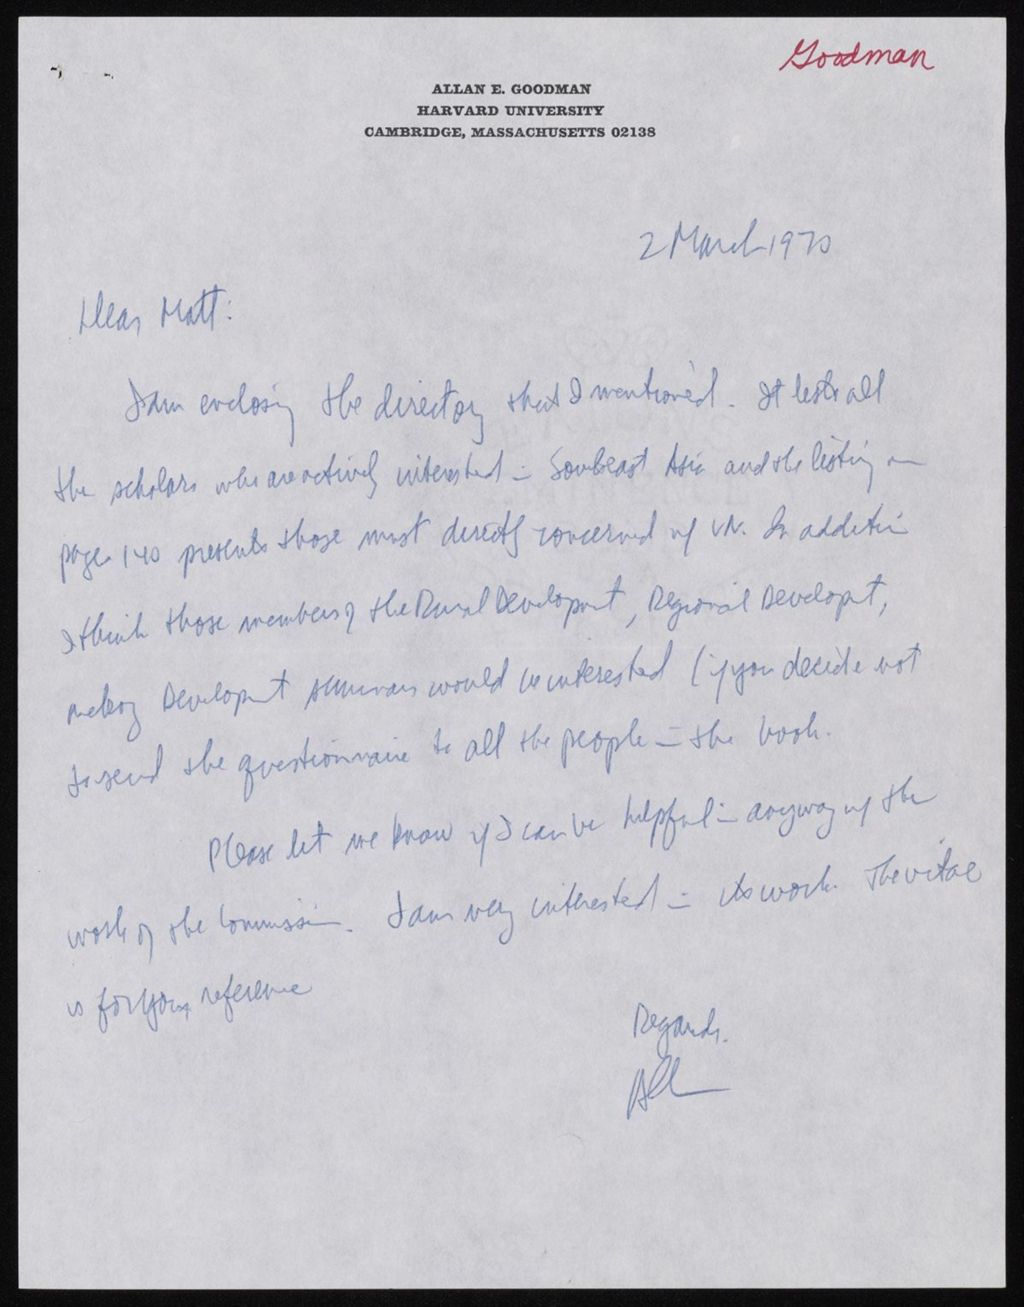 Goodman
ALLAN E. GOODMAN
HARVARD UNIVERSITY
CAMBRIDGE, MASSACHUSETTS 02138
2 March 1970
Dear Matt:
I am enclosing the directory that I mentioned. It lists all
the scholars who are actively interested in Southeast Asia and the listing on
page 140 presents those most directly concerned w/ VN. In addition
I think those members of the Rural Development, Regional Development,
Development seminars would be interested (if you decide not
to send the questionnaire to all the people in the book.
Please let me know if I can be helpful in anyway w/ the
work of the Commission. I am very interested in its work. The vitae
is for your reference
Regards,
Allan